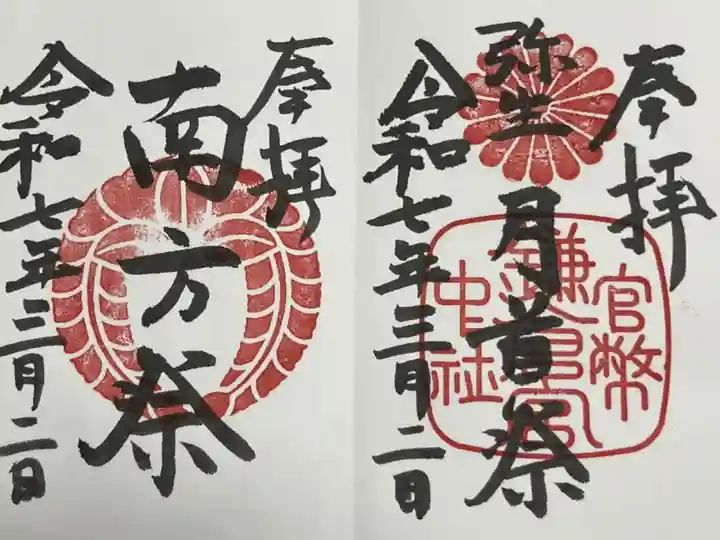 奉拝
弥生
月首祭
官幣
鎌倉宮
中社
令和七年三月二日
奉拝
南方祭
令和七年三月二日